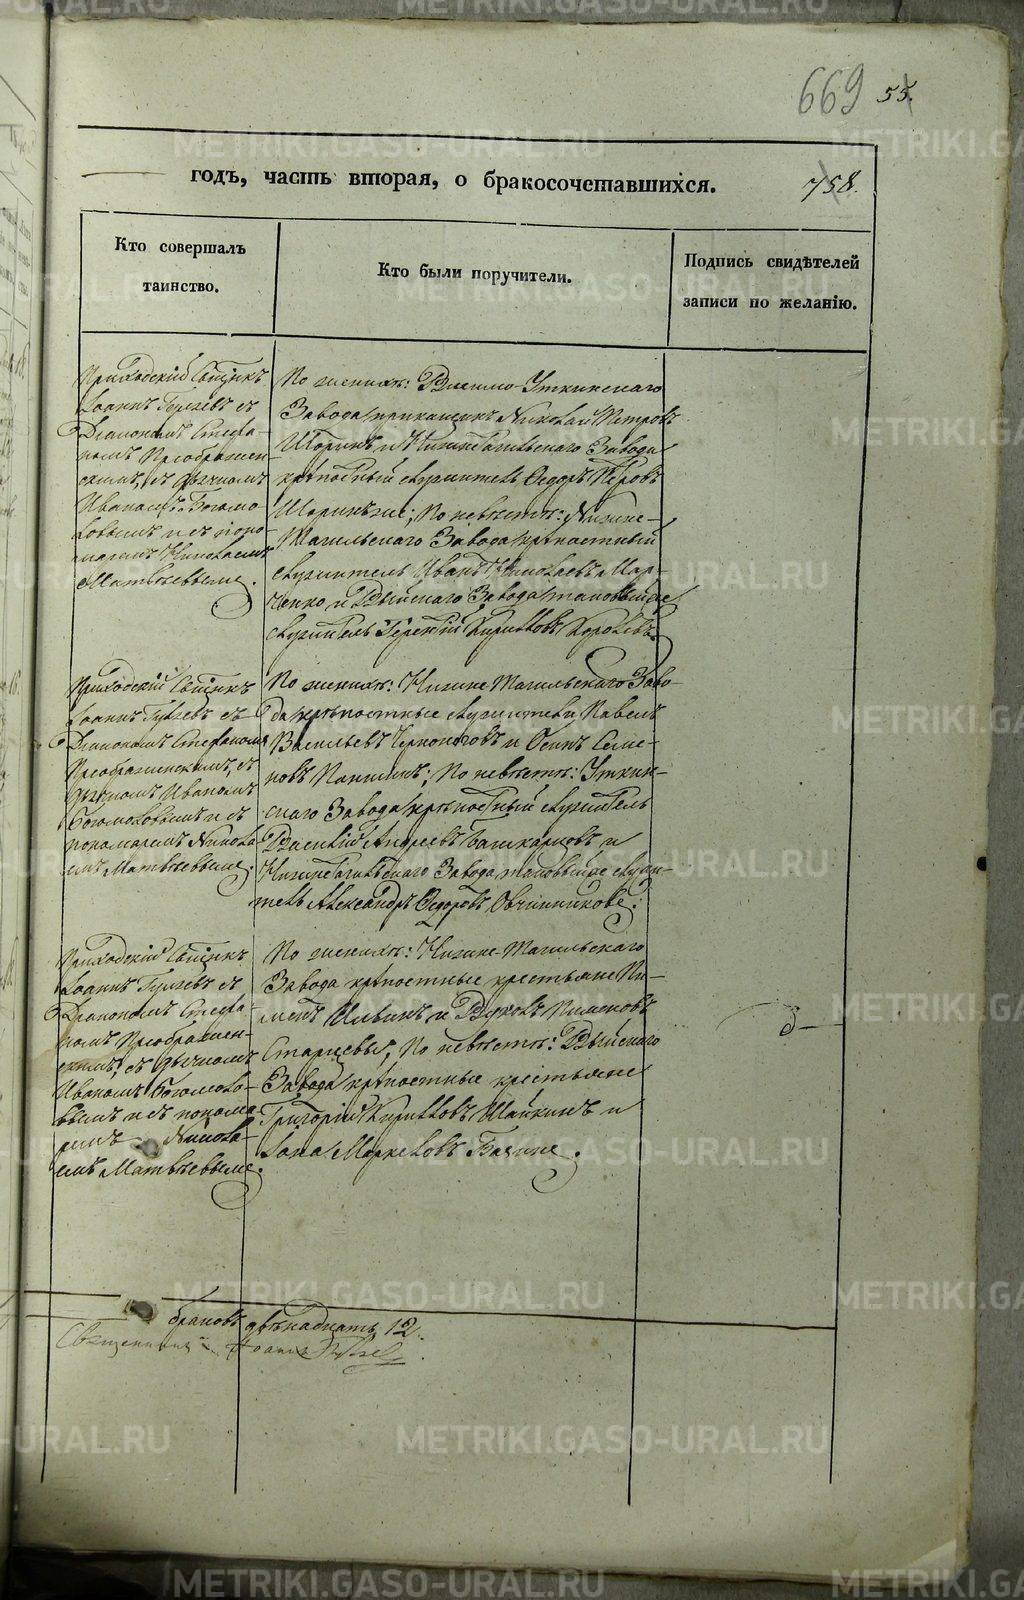 669 55.
годъ, часть вторая, о бракосочетавшихся.
758.
Кто совершалъ
таинство.
Кто были поручители.
Подпись свидѣтелей
записи по желанію.
Приходскій Свщнкъ
Іоаннъ съ
Діакономъ Стефа-
номъ Преображен-
скимъ, съ дьячкомъ
Иваномъ Богомо-
ловымъ и съ поно-
маремъ Николаемъ
Матвѣевымъ.
По женихѣ: Висимо-Уткинскаго
Завода прикащикъ Николай Петровъ
Шоринъ и Нижнетагильскаго Завода
крѣпостный служитель Ѳедоръ Петровъ
Шоринъ же; По невѣстѣ: Нижне-
Тагильскаго Завода крѣпостный
служитель Иванъ Николаевъ Мар-
ченко и Выйскаго Завода таковый же
служитель Терентій Кириловъ
Приходскій Свщнкъ
Іоаннъ съ
Діакономъ Стефаномъ
Преображенскимъ, съ
дьячкомъ Иваномъ
Богомоловымъ и съ
пономаремъ Никола-
емъ Матвѣевымъ.
По женихѣ: Нижне Тагильскаго Заво-
да крѣпостные служители Павелъ
Васильевъ и Осипъ Семе-
новъ Паншинъ; По невѣстѣ: Уткин-
скаго Завода крѣпостный служитель
Василій Андреевъ Башкарцовъ и
Нижнетагильскаго Завода таковый же служи-
тель Александръ Ѳедоровъ Овчинниковъ.
Приходскій Свщнкъ
Іоаннъ съ
Діакономъ Стефа-
номъ Преображен-
скимъ, съ дьячкомъ
Иваномъ Богомоло-
вымъ и съ понома-
ремъ Никола-
емъ Матвѣевымъ.
По женихѣ: Нижне-Тагильскаго
Завода крѣпостные крестьяне Пи-
менъ Ильинъ и Вуколъ Пименовъ
Старцевы, По невѣстѣ: Выйскаго
Завода крѣпостные крестьяне
Григорій Кириловъ Шайкинъ и
Іона Маркеловъ
браковъ двѣнадцать 12.
Священникъ Іоаннъ